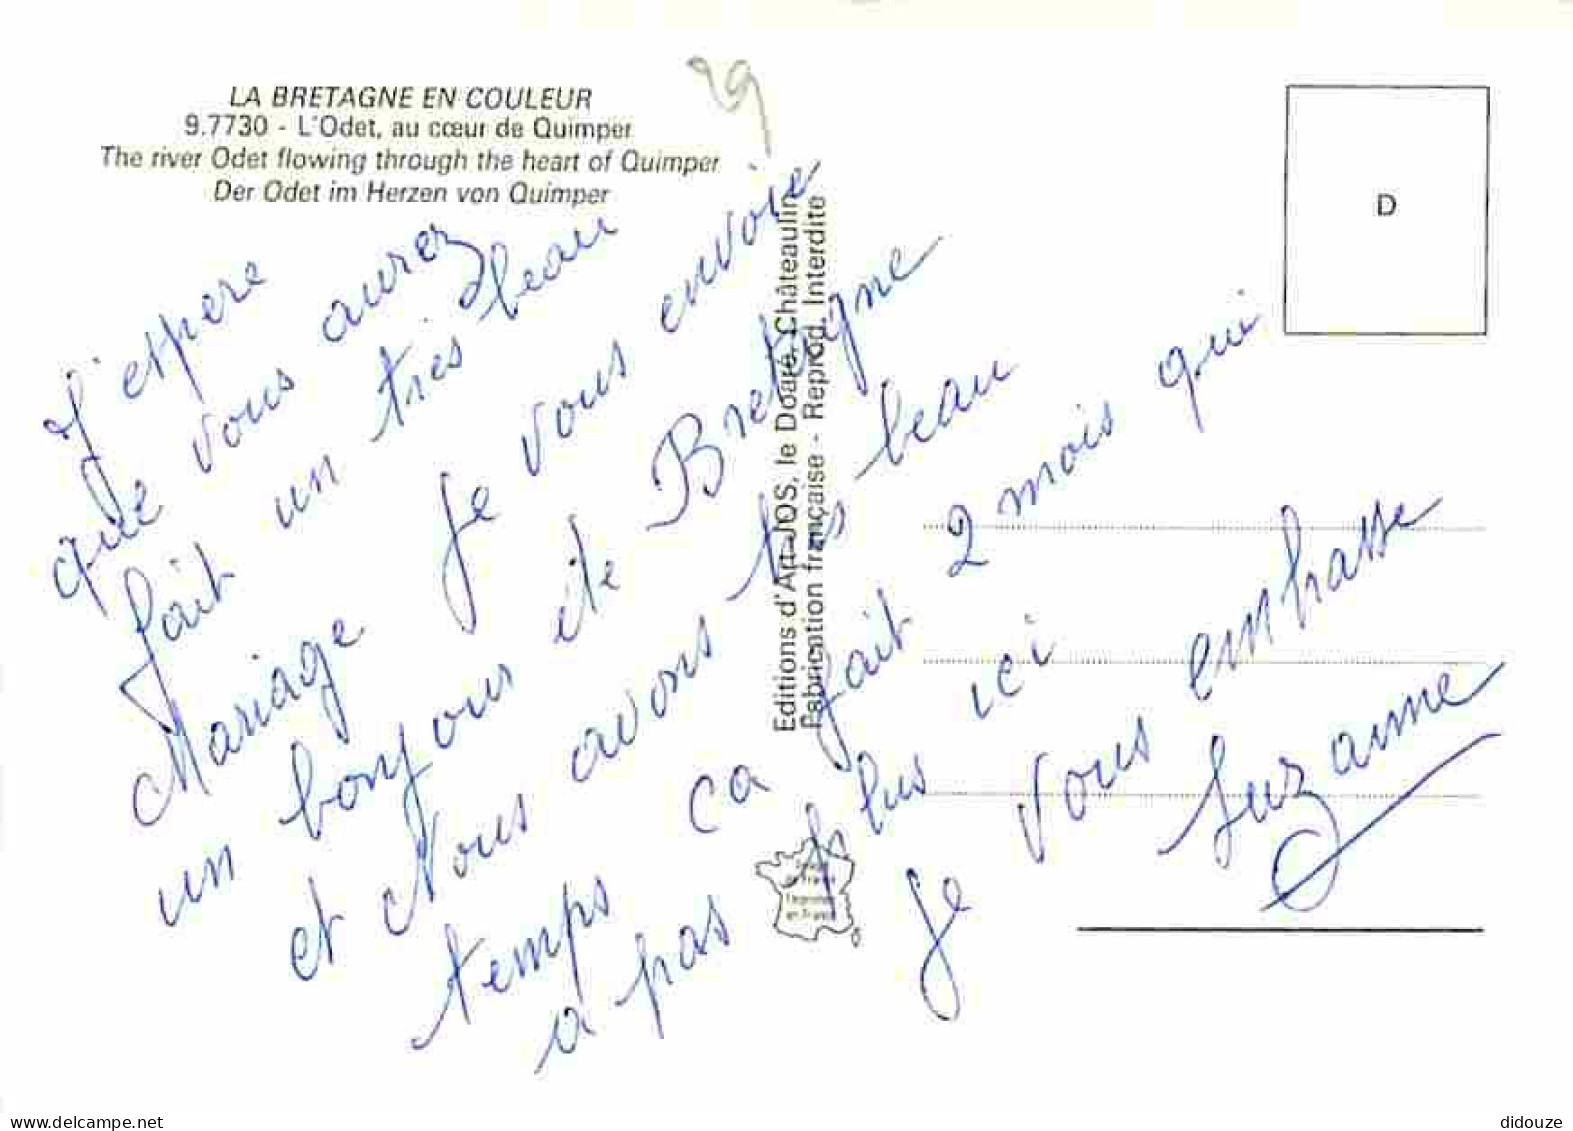 LA BRETAGNE EN COULEUR
9.7730 - L'Odet, au cœur de Quimper
The river Odet flowing through the heart of Quimper
Der Odet im Herzen von Quimper
29
D
Editions d'Art JOS, le Doaré, Châteaulin
Fabrication française - Reprod. Interdite
J'espere
que vous aurez
fait un tres beau
Mariage Je vous envoie
un bonjour de Bretagne
et Nous avons tres beau
temps ca fait 2 mois qui
a pas plus ici
Je vous embrasse
Suzanne
Image
de France
Imprimé
en France
delcampe.net
didouze